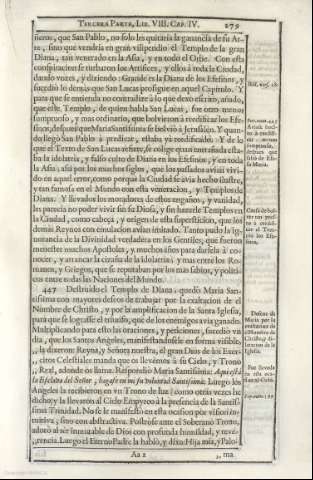 TERCERA PARTE, LIB. VIII. CAP. IV. 279
ñeros, que San Pablo, no solo les quitaria la ganancia de su Ar-
te, sino que vendria en gran vilipendio el Templo de la gran
Diana, tan venerado en la Asia, y en todo el Orbe. Con esta
conspiracion se turbaron los Artifices, y ellos à toda la Ciudad,
dando vozes, y diziendo: Grande es la Diana de los Efesinos, y
sucediò lo demàs que San Lucas prosigue en aquel Capitulo. Y
para que se entienda no contradize à lo que dexo escrito, añado,
que este Templo, de quien habla San Lucas, fue otro menos
sumptuoso, y mas ordinario, que bolvieron à reedificar los Efe-
sinos, despues que Maria Santissima se bolviò à Jerusalèn. Y quan-
do llegò San Pablo à predicar, estaba yà reedificado. Y de lo
que el Texto de San Lucas refiere, se colige quan entrañada esta-
ba la idolatria, y falso culto de Diana en los Efesinos, y en toda
la Asia; assi por los muchos siglos, que los passados avian vivi-
do en aquel error, como porque la Ciudad se avia hecho ilustre,
y tan famosa en el Mundo con esta veneracion, y Templos de
Diana. Y llevados los moradores de estos engaños, y vanidad,
les parecia no poder vivir sin su Diosa, y sin hazerle Templos en
la Ciudad, como cabeça, y origen de esta supersticion, que los
demàs Reynos con emulacion avian imitado. Tanto pudo la ig-
norancia de la Divinidad verdadera en los Gentiles, que fueron
menester muchos Apostoles, y muchos años para darsela à co-
nocer, y arrancar la cizaña de la idolatria; y mas entre los Ro-
manos, y Griegos, que se reputaban por los mas sabios, y politi-
cos entre todas las Naciones del Mundo.
447 Destruido el Templo de Diana, quedò Maria San-
tissima con mayores deseos de trabajar por la exaltacion de el
Nombre de Christo, y por la amplificacion de la Santa Iglesia,
para que se lograsse el triunfo, que de los enemigos avia ganado.
Multiplicando para esto las oraciones, y peticiones, sucediò vn
dia, que los Santos Angeles, manifestandosele en forma visible,
,, la dixeron: Reyna, y Señora nuestra, el gran Dios de los Exer-
,, citos Celestiales manda que os llevemos à su Cielo, y Trono
,, Real, adonde os llama. Respondiò Maria Santissima: Aqui està
la Esclava del Señor, hagase en mi su voluntad Santissima. Luego los
Angeles la recibieron en vn Trono de luz (como otras vezes he
dicho) y la llevaron al Cielo Empyreo à la presencia de la Santis-
sima Trinidad. No se le manifestò en esta ocasion por vision in-
tuitiva, sino con abstractiva. Postròse ante el Soberano Trono,
adorò al sèr Inmutable de Dios con profunda humildad, y reve-
,, rencia. Luego el Eterno Padre la hablò, y dixo: Hija mia, y Palo-
Aa 2 ,, ma